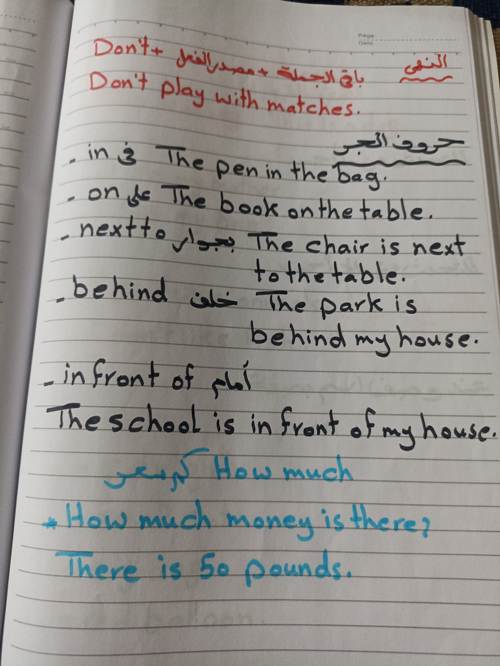 النفى
Don't + مصدر الفعل + باقى الجملة
Don't play with matches.
حروف الجر
- in فى The pen in the bag.
- on على The book on the table.
- next to بجوار The chair is next
to the table.
- behind خلف The park is
behind my house.
- in front of أمام
The school is in front of my house.
How much كم سعر
* How much money is there?
There is 50 pounds.